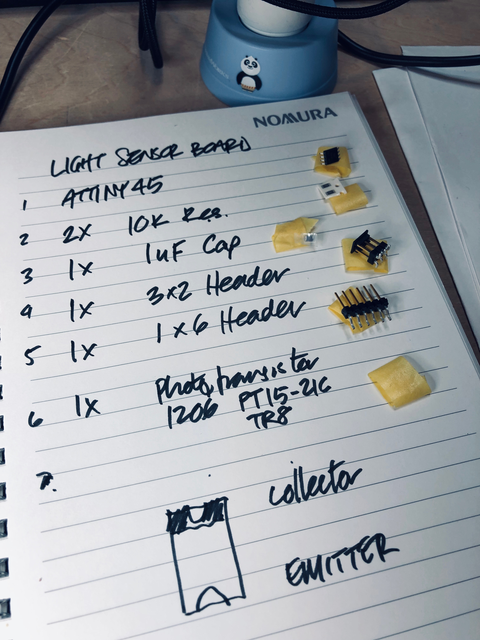 NOMURA
LIGHT SENSOR BOARD
1 ATTINY45
2 2x 10K Res.
3 1x 1uF Cap
4 1x 3x2 Header
5 1x 1x6 Header
6 1x Phototransistor
1206 PT15-21C
TR8
7.
collector
EMITTER